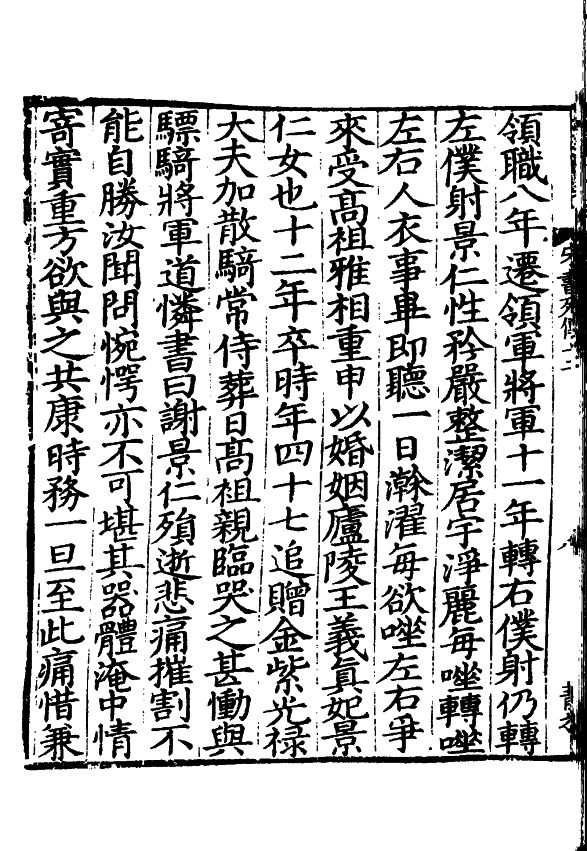 宋書列傳十二
八
領職八年遷領軍將軍十一年轉右僕射仍轉
左僕射景仁性矜嚴整潔居宇淨麗每唾轉唾
左右人衣事畢即聽一日澣濯每欲唾左右爭
來受髙祖雅相重申以婚姻廬陵王義眞妃景
仁女也十二年卒時年四十七追贈金紫光祿
大夫加散騎常侍葬日髙祖親臨哭之甚慟與
驃騎將軍道憐書曰謝景仁殞逝悲痛摧割不
能自勝汝聞問惋愕亦不可堪其器體淹中情
寄實重方欲與之共康時務一旦至此痛惜兼